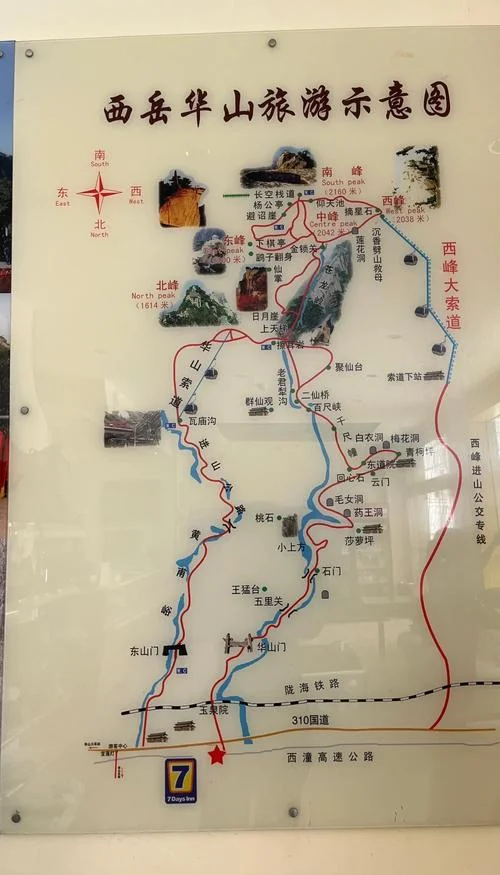 西岳华山旅游示意图
南
South
东
East
西
West
北
North
南峰
South peak
(2160 米)
长空栈道
杨公亭
避诏崖
仰天池
摘星石
西峰
West peak
(2038 米)
中峰
Centre peak
(2042 米)
东峰
下棋亭
鹞子翻身
金锁关
莲花洞
沉香劈山救母
仙掌
苍龙岭
西峰大索道
北峰
North peak
(1614 米)
日月崖
上天梯
擦耳岩
华山索道
聚仙台
索道下站
老君犁沟
群仙观
二仙桥
百尺峡
瓦庙沟
千尺幢
白衣洞
梅花洞
青柯坪
东道院
回心石
云门
进山公路
西峰进山公交专线
毛女洞
药王洞
桃石
莎萝坪
小上方
黄甫峪
石门
王猛台
五里关
东山门
华山门
陇海铁路
玉泉院
310国道
游客中心
西潼高速公路
7
7 Days Inn